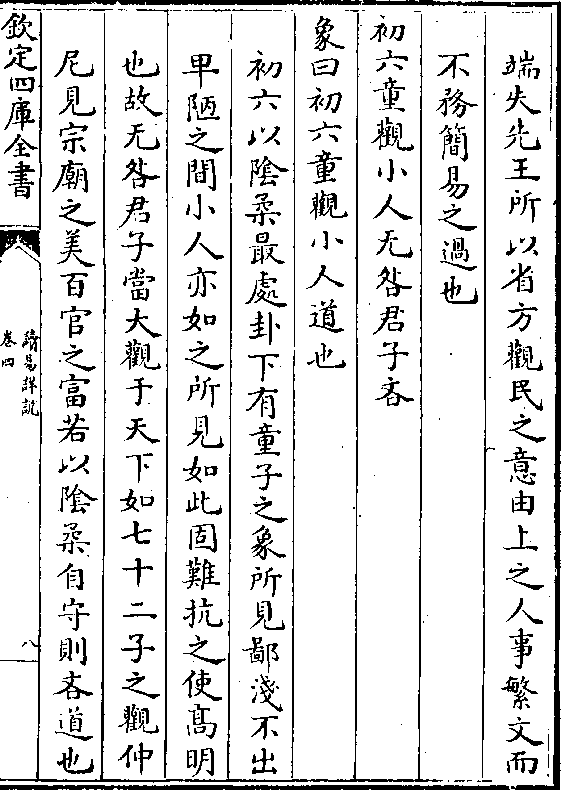 端失先王所以省方觀民之意由上之人事繁文而
不務簡易之過也
初六童觀小人无咎君子吝
象曰初六童觀小人道也
初六以陰柔最處卦下有童子之象所見鄙淺不出
卑陋之間小人亦如之所見如此固難抗之使髙明
也故无咎君子當大觀于天下如七十二子之觀仲
尼見宗廟之美百官之富若以陰柔自守則吝道也
欽定四庫全書
讀易詳說
卷四
八